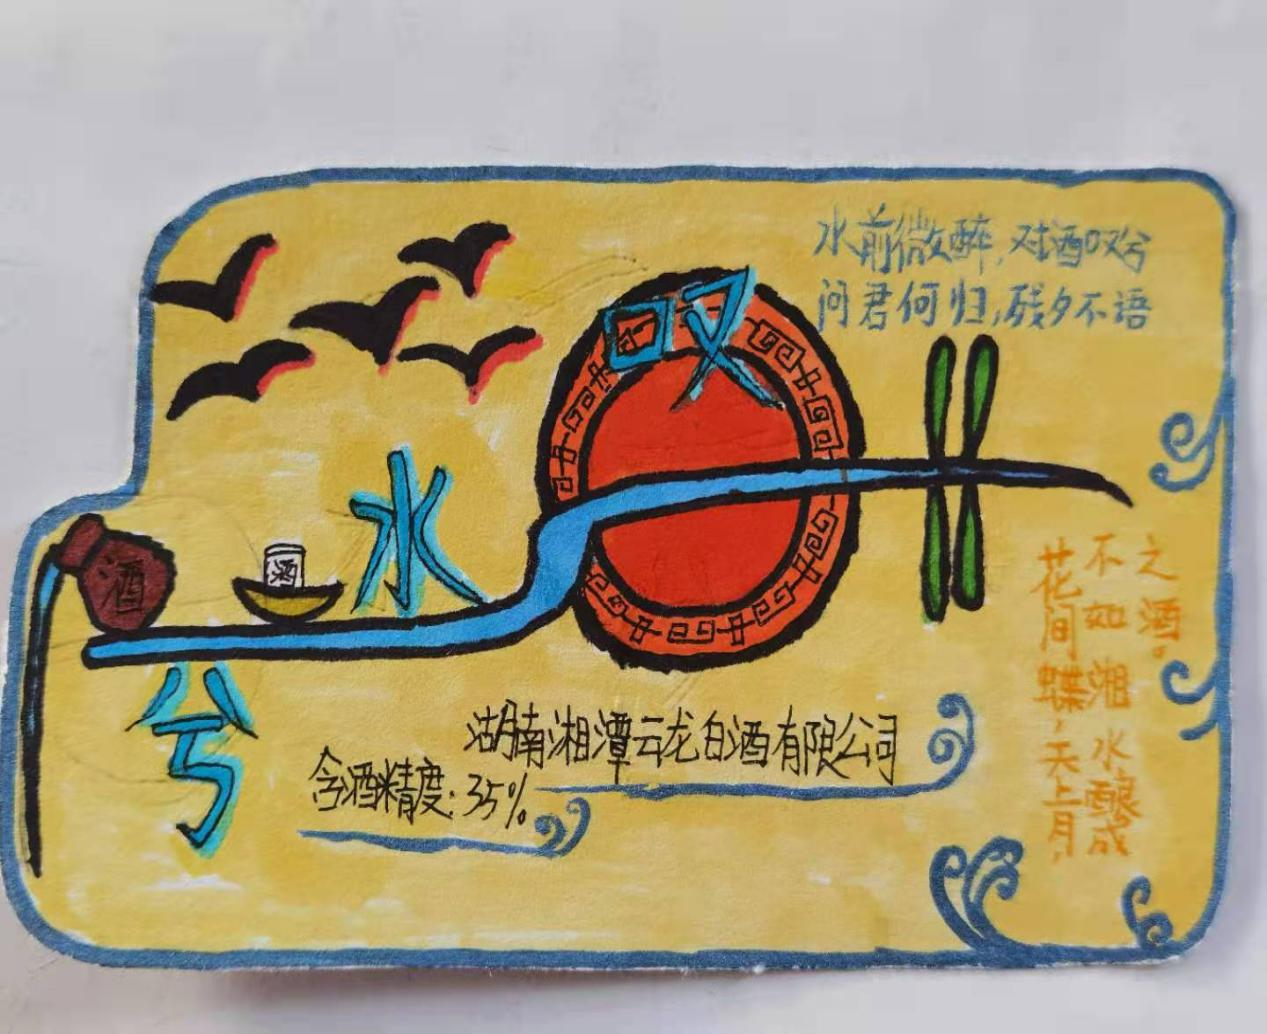 水前微醉,对酒叹兮
问君何归,残夕不语
叹
水
兮
酒
酒
之酒。
不如湘水酿成
花间蝶,天上月,
湖南湘潭云龙白酒有限公司
含酒精度:35%